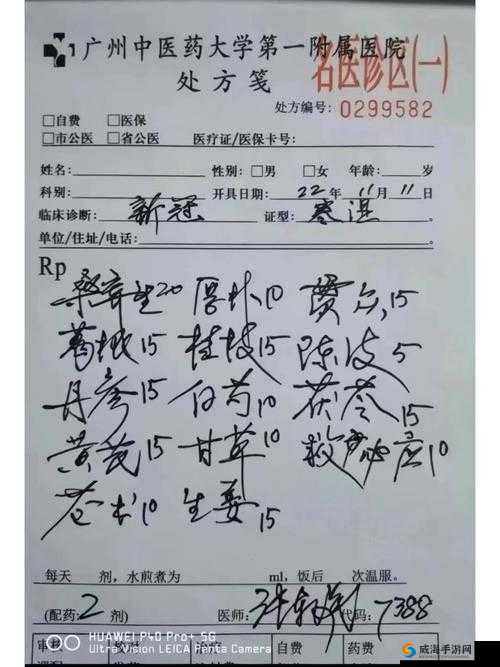 广州中医药大学第一附属医院
名医诊区(一)
处方笺
处方编号：0299582
□自费 □医保
□市公医 □省公医 医疗证/医保卡号：
姓名： 性别：□男 □女 年龄： 岁
科别： 开具日期：22年11月11日
临床诊断：新冠 证型：寒湿
单位/住址/电话：
Rp
桑寄生20 厚朴10 贯众15
葛根15 桂枝15 陈皮5
丹参15 白芍10 茯苓15
黄芪15 甘草10 救必应10
苍术10 生姜15
每天 剂，水煎煮为 ml，饭后 次温服。
(配药2剂) 医师： 代码：7388
审核 药费
HUAWEI P40 Pro+ 5G
Ultra Vision LEICA Penta Camera
威海手游网